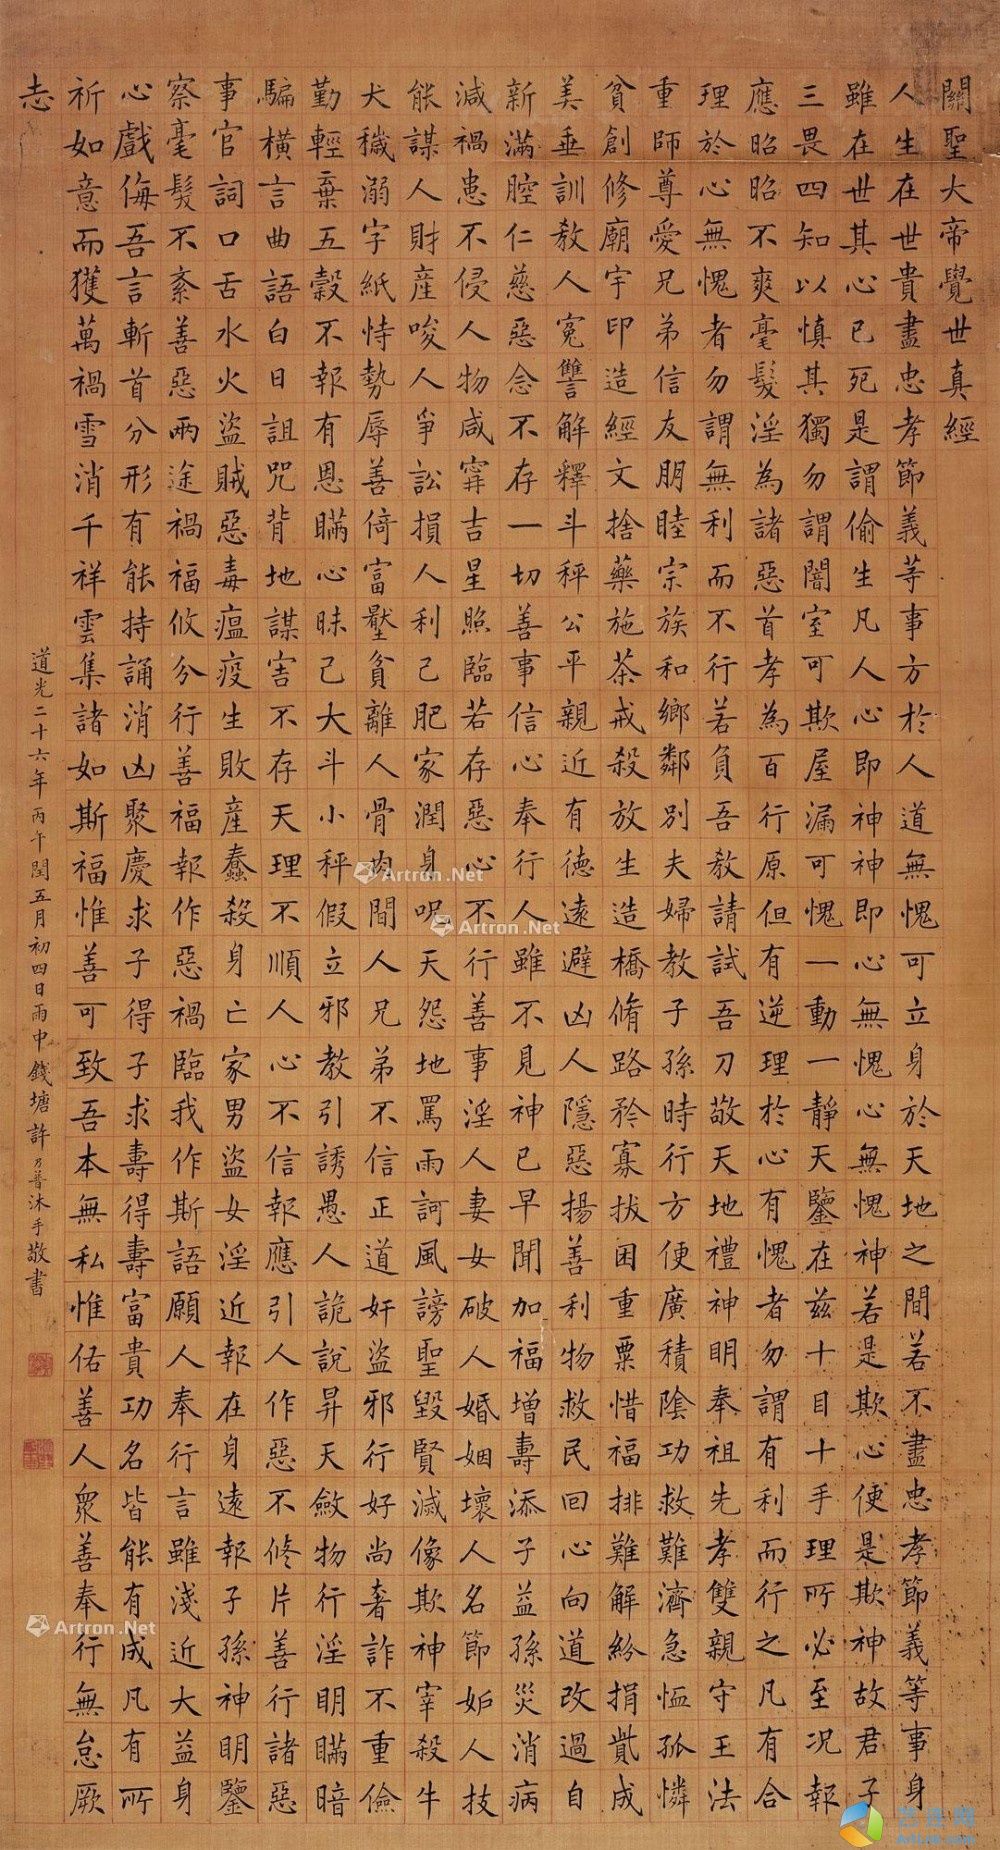 關聖大帝覺世真經
人生在世貴盡忠孝節義等事方於人道無愧可立身於天地之間若不盡忠孝節義等事身
雖在世其心已死是謂偷生凡人心即神神即心無愧心無愧神若是欺心便是欺神故君子
三畏四知以慎其獨勿謂闇室可欺屋漏可愧一動一靜天鑒在茲十目十手理所必至況報
應昭昭不爽毫髮淫為諸惡首孝為百行原但有逆理於心有愧者勿謂有利而行之凡有合
理於心無愧者勿謂無利而不行若負吾教請試吾刀敬天地禮神明奉祖先孝雙親守王法
重師尊愛兄弟信友朋睦宗族和鄉鄰別夫婦教子孫時行方便廣積陰功救難濟急恤孤憐
貧創修廟宇印造經文捨藥施茶戒殺放生造橋脩路矜寡拔困重粟惜福排難解紛捐貲成
美垂訓教人冤讐解釋斗秤公平親近有德遠避凶人隱惡揚善利物救民回心向道改過自
新滿腔仁慈惡念不存一切善事信心奉行人雖不見神已早聞加福增壽添子益孫災消病
減禍患不侵人物咸甯吉星照臨若存惡心不行善事淫人妻女破人婚姻壞人名節妒人技
能謀人財產唆人爭訟損人利己肥家潤身呪天怨地罵雨訶風謗聖毀賢滅像欺神宰殺牛
犬穢溺字紙恃勢辱善倚富壓貧離人骨肉間人兄弟不信正道奸盜邪行好尚奢詐不重儉
勤輕棄五穀不報有恩瞞心昧己大斗小秤假立邪教引誘愚人詭說昇天斂物行淫明瞞暗
騙橫言曲語白日詛咒背地謀害不存天理不順人心不信報應引人作惡不修片善行諸惡
事官詞口舌水火盜賊惡毒瘟疫生敗產蠢殺身亡家男盜女淫近報在身遠報子孫神明鑒
察毫髮不紊善惡兩途禍福攸分行善福報作惡禍臨我作斯語願人奉行言雖淺近大益身
心戲侮吾言斬首分形有能持誦消凶聚慶求子得子求壽得壽富貴功名皆能有成凡有所
祈如意而獲萬禍雪消千祥雲集諸如斯福惟善可致吾本無私惟佑善人眾善奉行無怠厥
志
道光二十六年丙午閏五月初四日雨中錢塘許乃普沐手敬書
Artron.Net
Artron.Net
Artron.Net